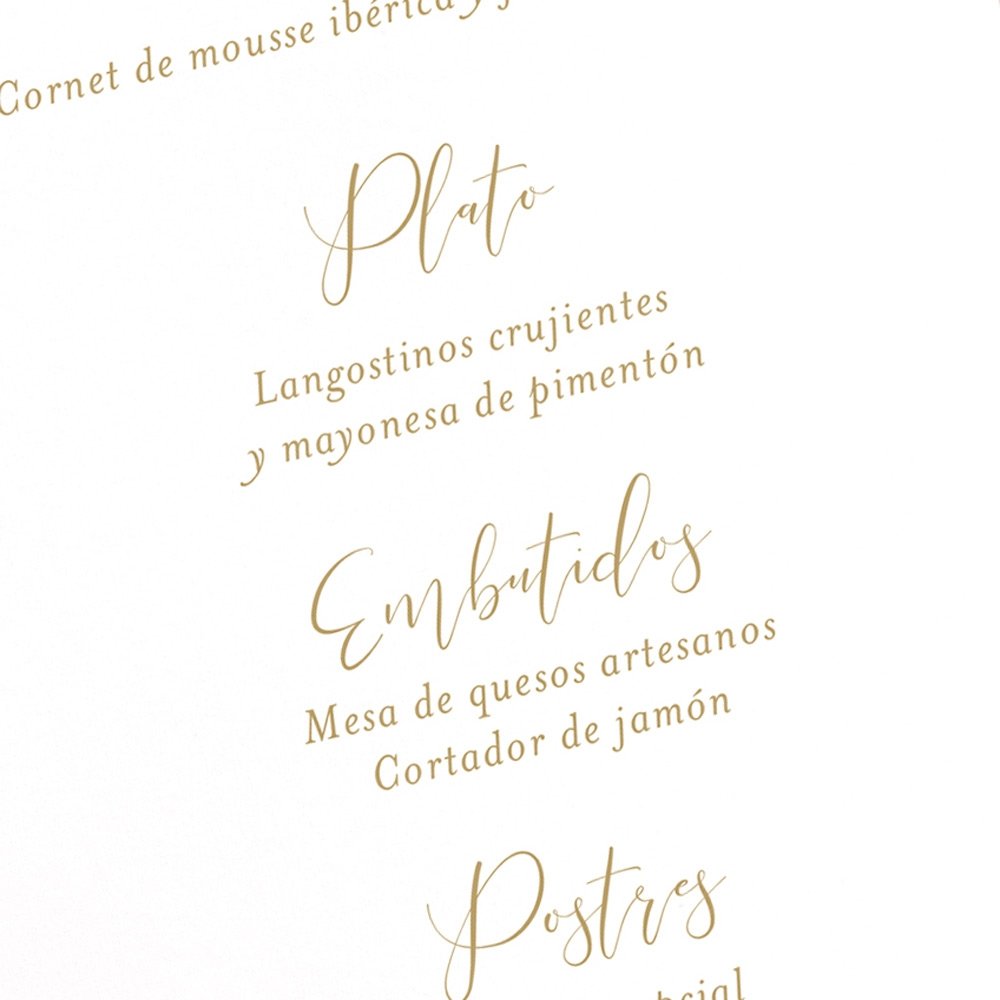 Cornet de mousse ibérica y
Plato
Langostinos crujientes
y mayonesa de pimentón
Embutidos
Mesa de quesos artesanos
Cortador de jamón
Postres